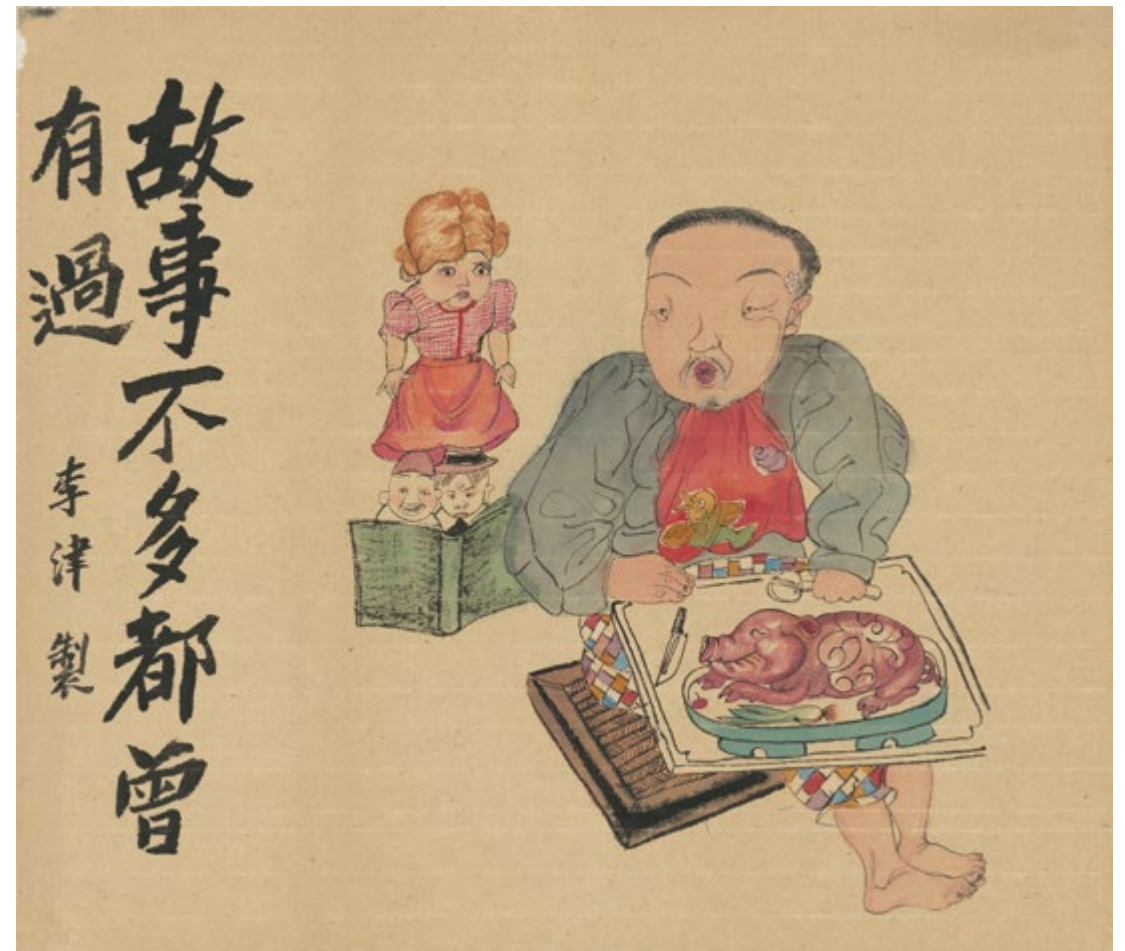 故事不多都曾
有過
李津製